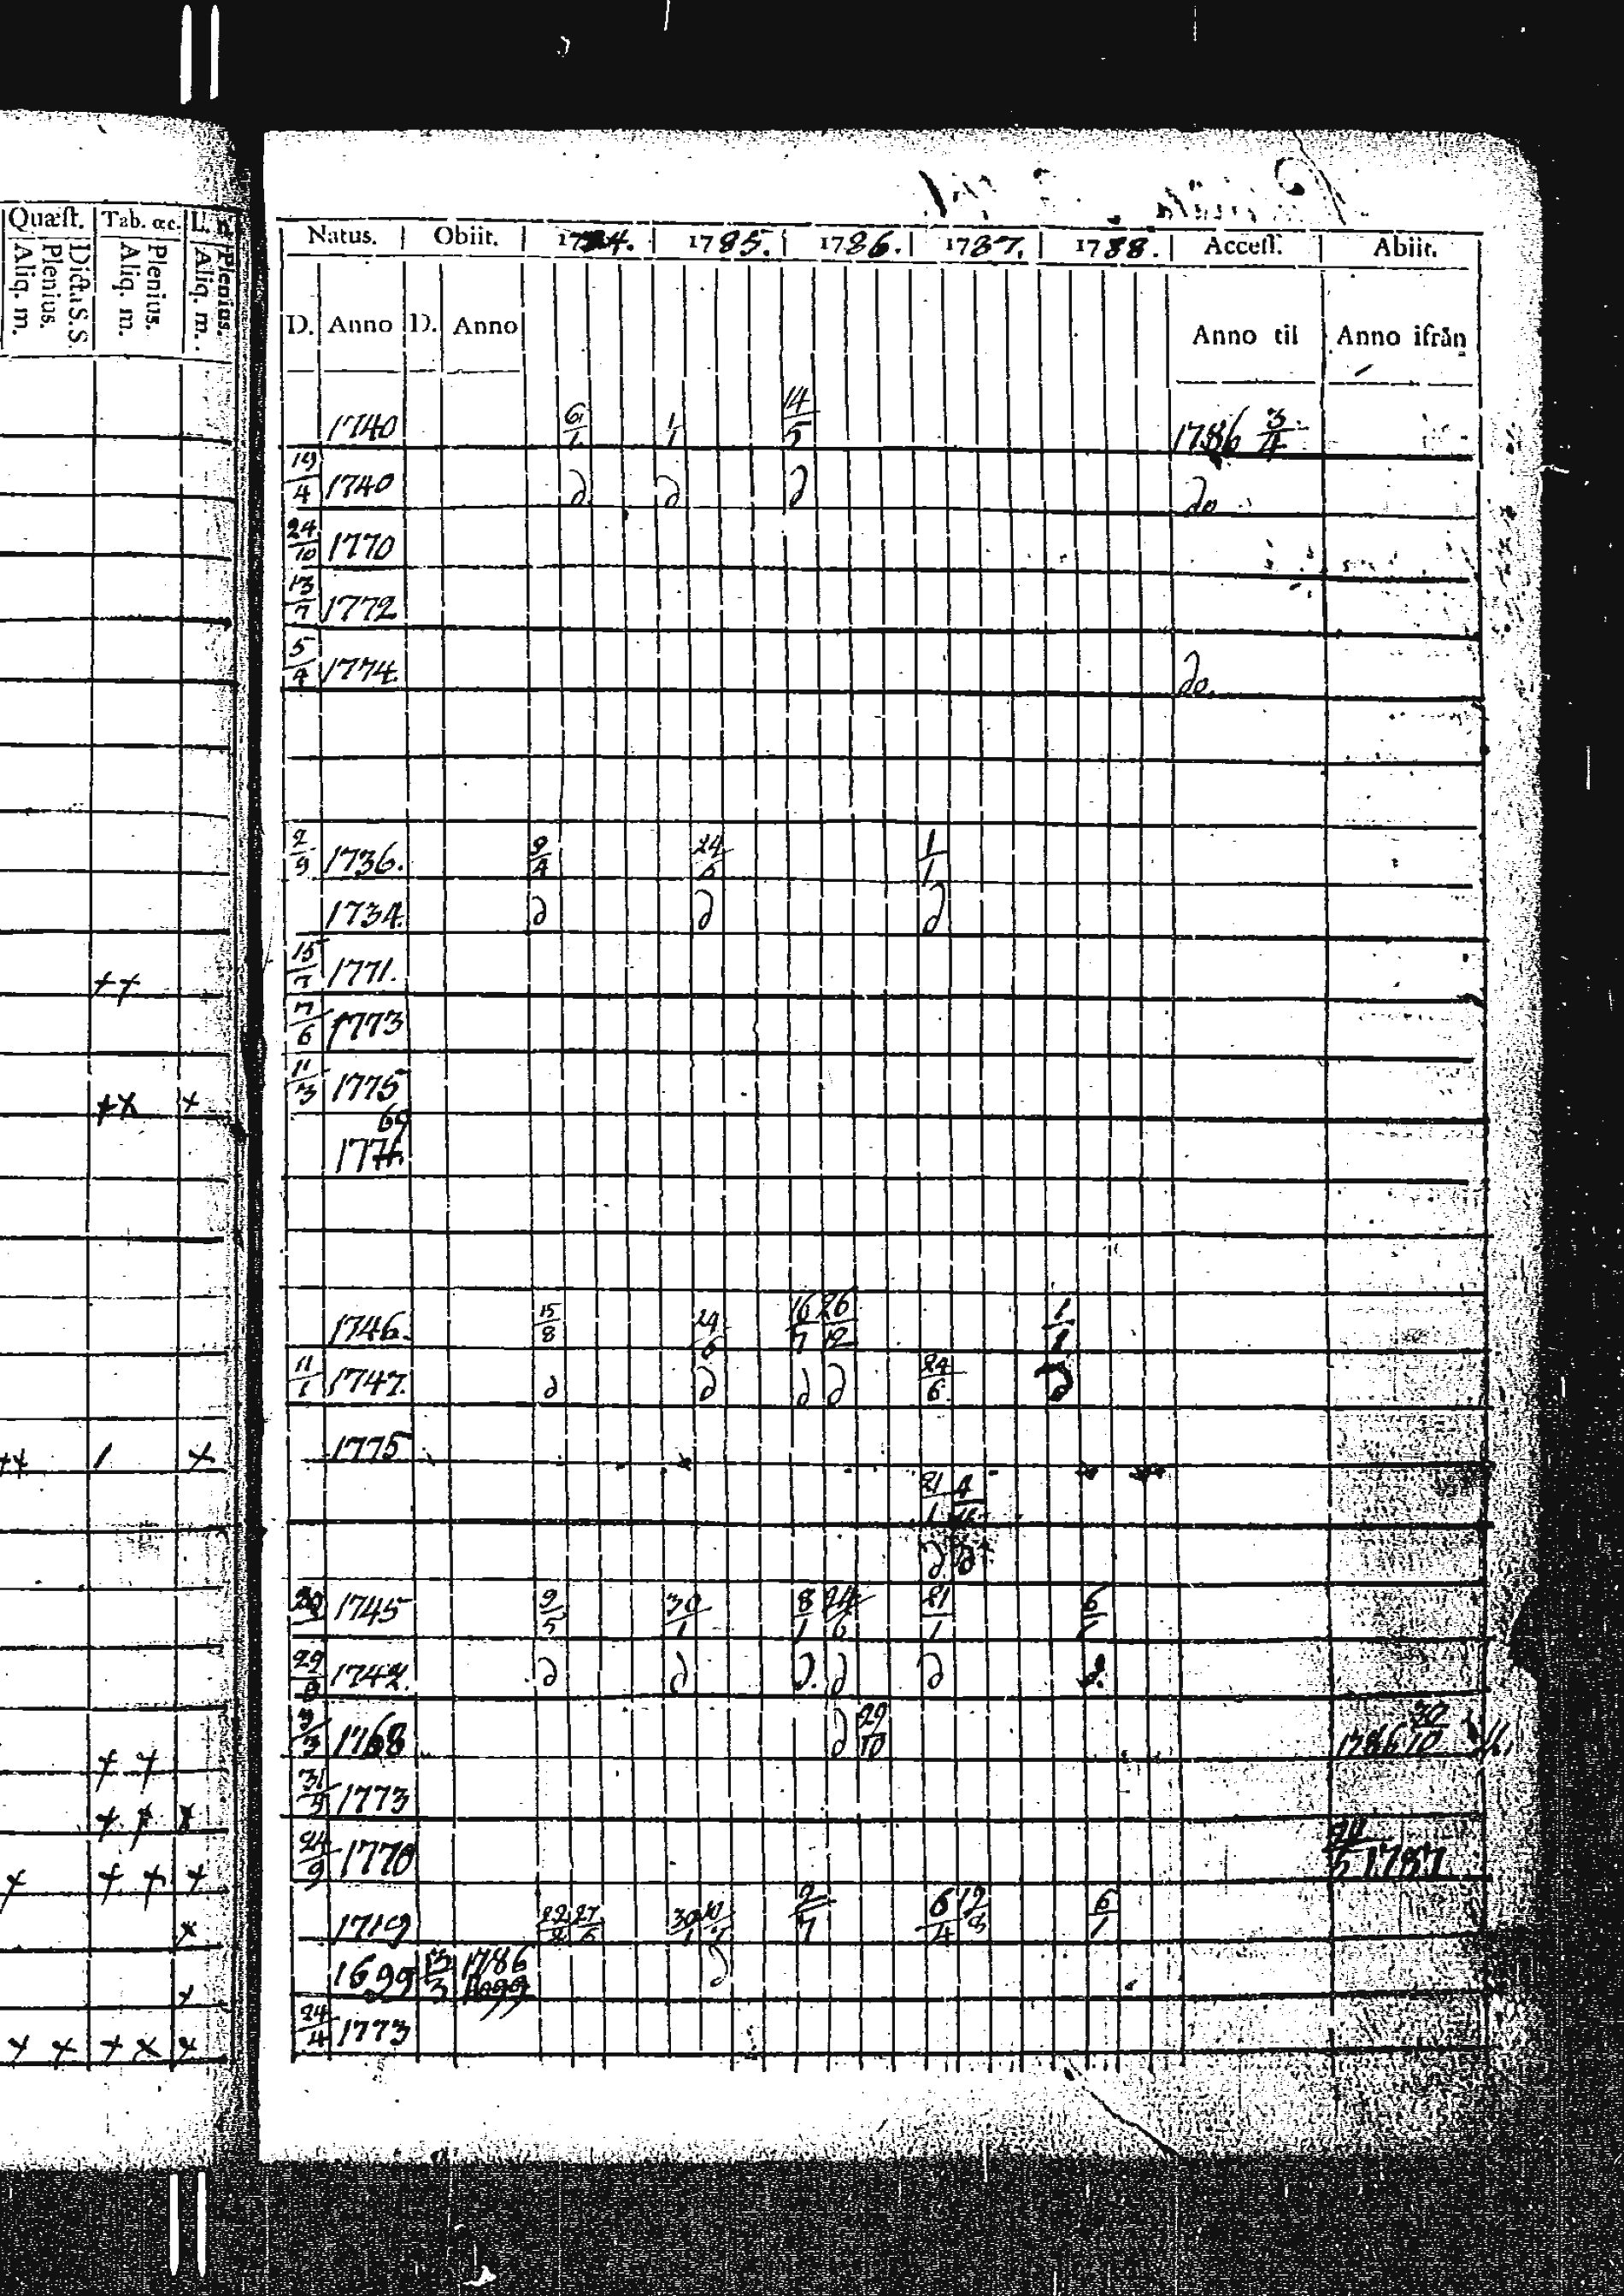 Quæſt. Tab. œc.
Dicta S. S. Plenius. Aliq. m.
Plenius. Aliq. m.
Plenius. Aliq. m.
Natus. Obiit. 1784. 1785. 1786. 1787. 1788. Acceſſ. Abiit.
D. Anno D. Anno Anno til Anno ifrån
1740 6/1 1/1 14/5 1786 3/4
19/4 1740 d d d do
24/10 1770
13/7 1772
5/4 1774. do.
2/9 1736. 9/4 24/6 1/1
1734. d d d
++ 15/7 1771.
7/6 1773
++ + 11/3 1775
69
1746. 15/8 24/6 16/7 26/12 1/1
11/1 1747. d d d d 24/6 d
++ 1 + 1775
21/1
d d
1745 9/5 30/1 8/1 24/6 21/1 6/1
1742. d d d. d d d.
+ + 1768 d 29/10 1786 30/10
+ + + 31/5 1773
+ + + + 24/9 1770 1787
+ 1719 2/7 6/4 12/8 6/1
+ 1699 1786 d
+ + + + + 24/4 1773